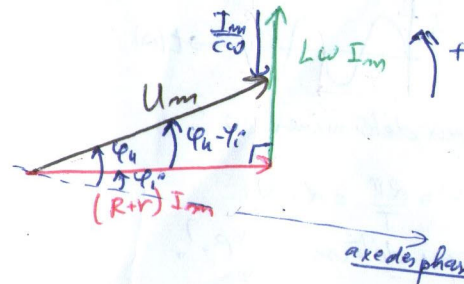 Im
Cω
LωIm
+
Um
φu
φu-φi
φi
(R+r) Im
axe des phas